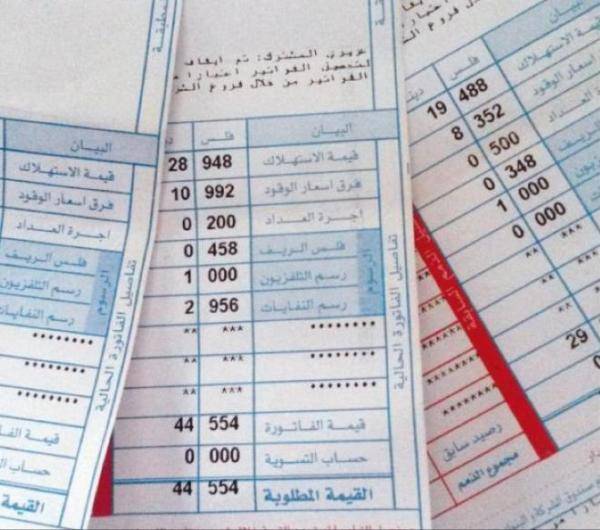 عزيزي المشترك: تم ايقاف
لتحصيل الفواتير اعتبارا م
الفواتير من خلال فروع الشر
البيان
قيمة الاستهلاك
فرق اسعار الوقود
اجرة العداد
فلس الريف
رسم التلفزيون
رسم النفايات
الرسوم
********
********
********
قيمة الفا
حساب التس
القيمة
تفاصيل الفاتورة الحالية
البيان فلس
قيمة الاستهلاك 948 28
فرق اسعار الوقود 992 10
اجرة العداد 200 0
فلس الريف 458 0
رسم التلفزيون 000 1
رسم النفايات 956 2
الرسوم
******** *** **
******** *** **
******** *** **
قيمة الفاتورة 554 44
حساب التسوية 000 0
القيمة المطلوبة 554 44
تفاصيل الفاتورة الحالية
البيان
فلس
قيمة الاستهلاك 488 19
فرق اسعار الوقود 352 8
500 0
348 0
000 1
000 0
29
رصيد سابق
مجموع الذمم